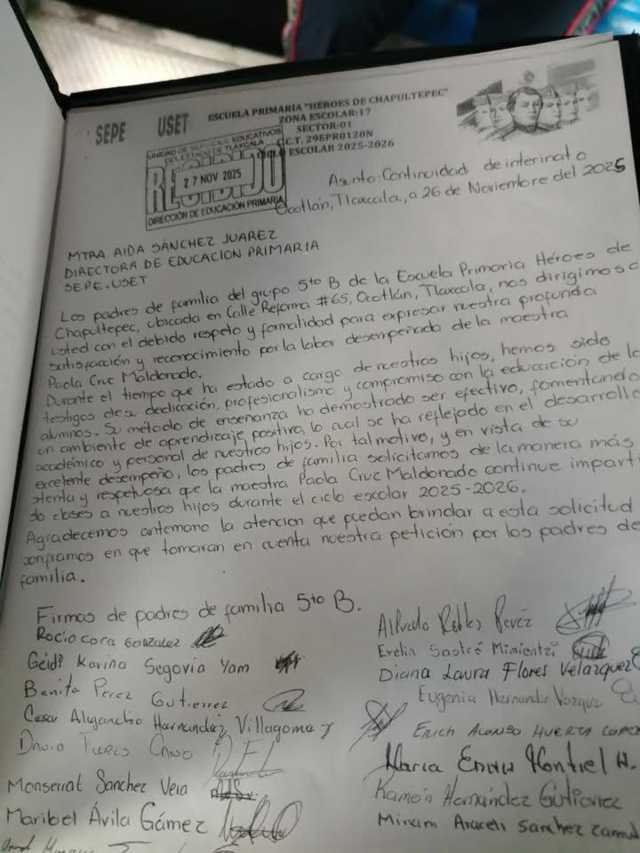 SEPE USET
ESCUELA PRIMARIA "HÉROES DE CHAPULTEPEC"
ZONA ESCOLAR:17
SECTOR:01
C.C.T. 29EPR0120N
CICLO ESCOLAR 2025-2026
UNIDAD DE SERVICIOS EDUCATIVOS
DEL ESTADO DE TLAXCALA
RECIBIDO
27 NOV 2025
DIRECCIÓN DE EDUCACIÓN PRIMARIA
Asunto: Continuidad de interinato
Ocotlán, Tlaxcala, a 26 de Noviembre del 2025
MTRA. AIDA SÁNCHEZ JUAREZ
DIRECTORA DE EDUCACION PRIMARIA
SEPE-USET
Los padres de familia del grupo 5to B de la Escuela Primaria Héroes de
Chapultepec, ubicada en Calle Reforma #65, Ocotlán, Tlaxcala, nos dirigimos a
usted con el debido respeto y formalidad para expresar nuestra profunda
satisfacción y reconocimiento por la labor desempeñada de la maestra
Paola Cruz Maldonado.
Durante el tiempo que ha estado a cargo de nuestros hijos, hemos sido
testigos de su dedicación, profesionalismo y compromiso con la educación de los
alumnos. Su método de enseñanza ha demostrado ser efectivo, fomentando
un ambiente de aprendizaje positivo, lo cual se ha reflejado en el desarrollo
académico y personal de nuestros hijos. Por tal motivo, y en vista de su
excelente desempeño, los padres de familia solicitamos de la manera más
atenta y respetuosa que la maestra Paola Cruz Maldonado continue impartien
do clases a nuestros hijos durante el ciclo escolar 2025-2026.
Agradecemos antemano la atencion que puedan brindar a esta solicitud
confiamos en que tomaran en cuenta nuestra petición por los padres de
familia.
Firmas de padres de familia 5to B.
Rocio Cora Gonzalez
Geidi Karina Segovia Yam
Benita Perez Gutierrez
Hernandez Villagomez
Monserrat Sanchez Vera
Maribel Ávila Gámez
Alfredo Robles Pérez
Evelin Sastré Mimientzi
Diana Laura Flores Velazquez
Eugenia Hernandez Vazquez
Erich Alonso Huerta Lopez
Maria Montiel H.
Ramón Hernández Gutierrez
Miriam Araceli Sanchez